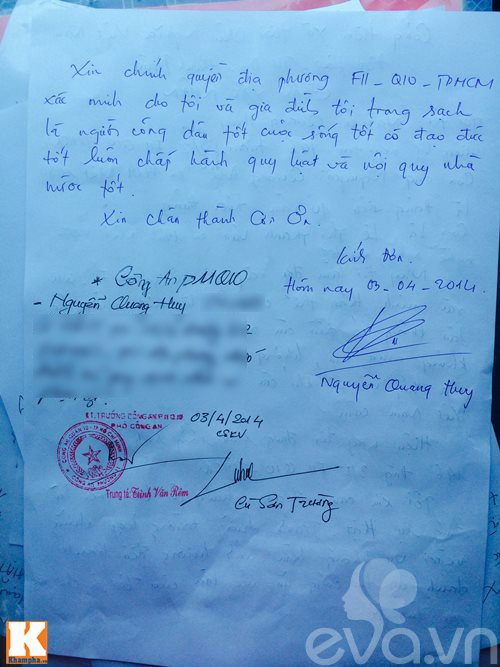 Xin chính quyền địa phương F11_Q10_TPHCM
xác minh cho tôi và gia đình tôi trong sạch
là người công dân tốt cuộc sống tốt có đạo đức
tốt luôn chấp hành quy luật và nội quy nhà
nước tốt.
Xin chân thành Cảm Ơn.
Kính Đơn.
Hôm nay 03-04-2014.
* Công An P11Q10
- Nguyễn Quang Huy
Nguyễn Quang Huy
KT.TRƯỞNG CÔNG AN P.11 Q.10
PHÓ CÔNG AN
03/4/2014
CSKV
Trung tá: Trịnh Văn Rớm
Cù Sơn Trường
K
Khampha.vn
eva.vn